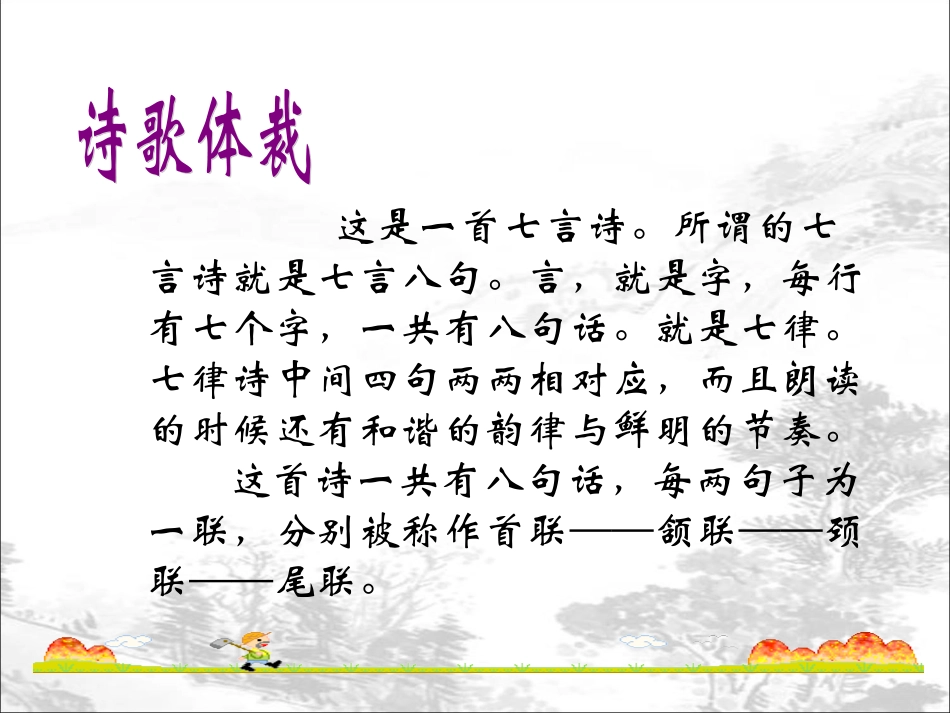 诗歌体裁
这是一首七言诗。所谓的七
言诗就是七言八句。言，就是字，每行
有七个字，一共有八句话。就是七律。
七律诗中间四句两两相对应，而且朗读
的时候还有和谐的韵律与鲜明的节奏。
这首诗一共有八句话，每两句子为
一联，分别被称作首联——颔联——颈
联——尾联。